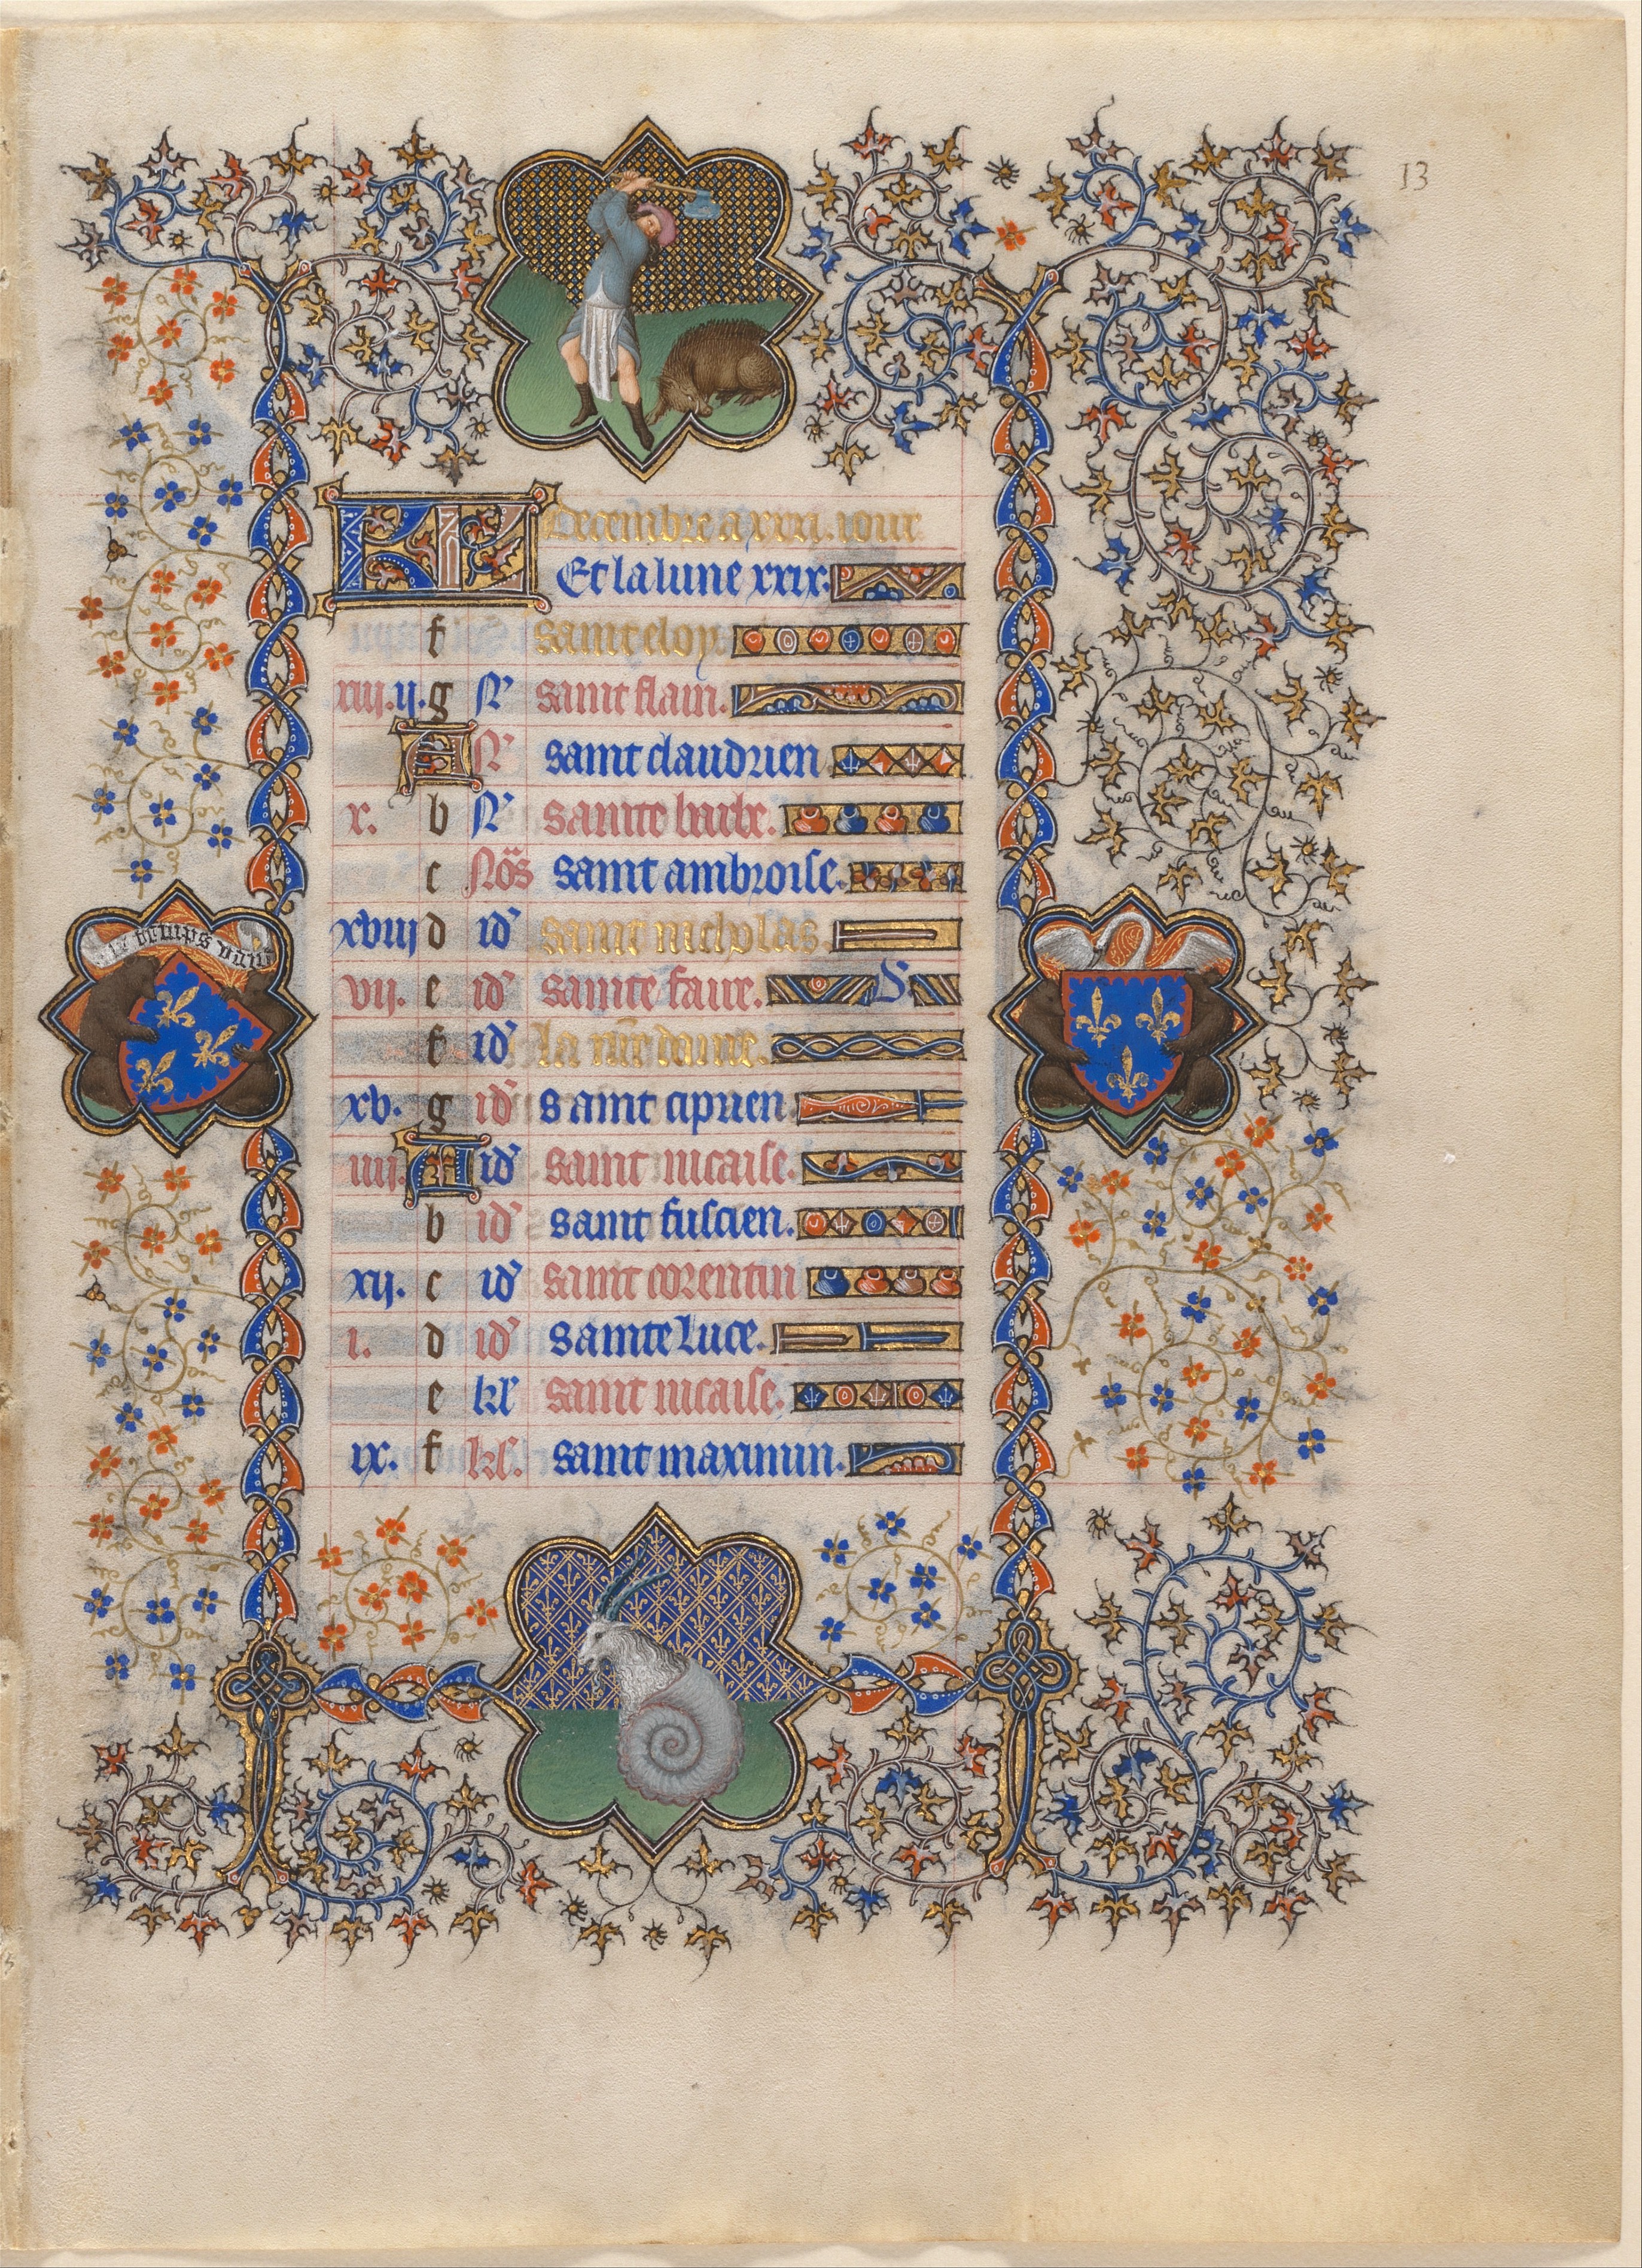 13
KL Decembre a xxxi. iour
Et la lune xxix.
f saint eloy.
xiii. ii. g N saint flain.
A N saint claudrien
x. b N sainte barbe.
c Nos saint ambroise.
le temps venra
xviii d id saint nicholas.
vii. e id sainte faire. S.
f id la nre dame.
xv. g id saint ciprien
iiii. A id saint nicaise.
b id saint fuscien.
xii. c id saint corentin
i. d id sainte Luce.
e kl saint nicaise.
ix. f kl. saint maximin.